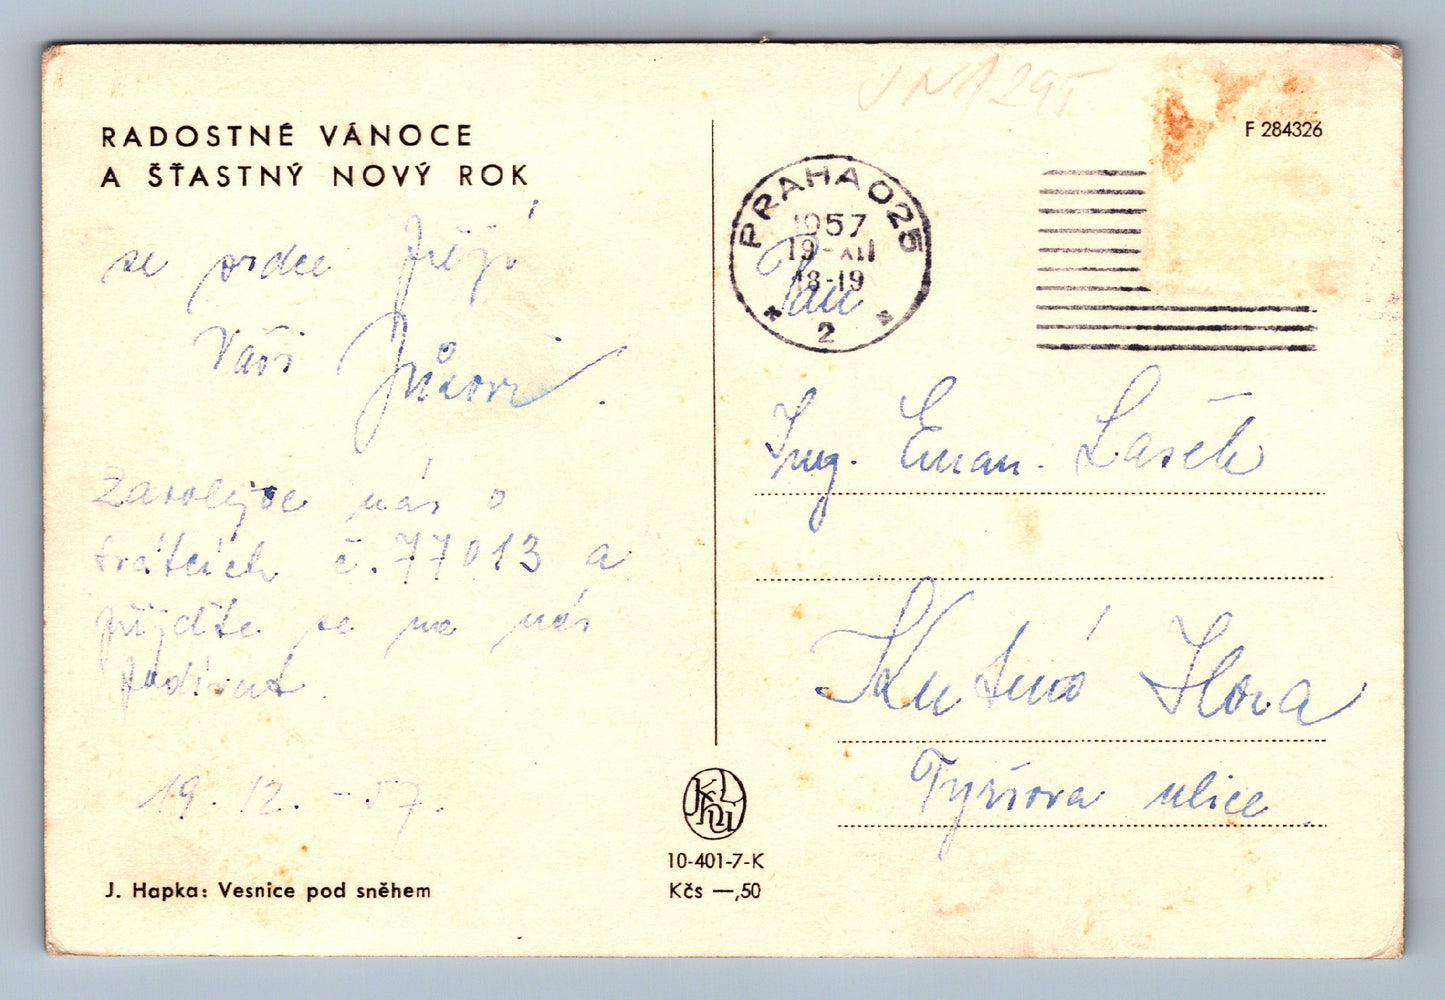 RADOSTNÉ VÁNOCE
A ŠŤASTNÝ NOVÝ ROK
ze srdce přejí
Vaši
Zavolejte nás o
svátcích č. 77013 a
přijďte se na nás
podívat.
19. 12. - 57.
J. Hapka: Vesnice pod sněhem
10-401-7-K
Kčs —,50
F 284326
PRAHA 025
1957
19-XII
18-19
2
Pan
Ing. Eman. Lašek
Kutná Hora
Tyršova ulice.